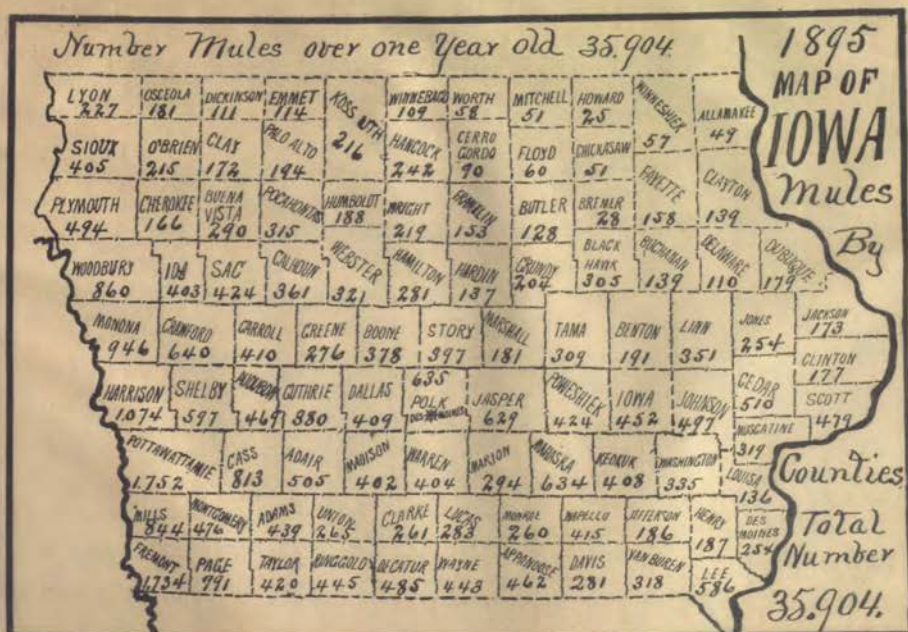 Number Mules over one Year old 35.904.
1895
MAP OF
IOWA
Mules
By
Counties
Total
Number
35.904.
LYON
227
OSCEOLA
181
DICKINSON
111
EMMET
114
KOSSUTH
216
WINNEBAGO
109
WORTH
58
MITCHELL
51
HOWARD
25
WINNESHIEK
57
ALLAMAKEE
49
SIOUX
405
O'BRIEN
215
CLAY
172
PALO ALTO
194
HANCOCK
242
CERRO
GORDO
90
FLOYD
60
CHICKASAW
51
FAYETTE
158
CLAYTON
139
PLYMOUTH
494
CHEROKEE
166
BUENA
VISTA
290
POCAHONTAS
315
HUMBOLDT
188
WRIGHT
219
FRANKLIN
153
BUTLER
128
BREMER
28
WOODBURY
860
IDA
403
SAC
424
CALHOUN
361
WEBSTER
321
HAMILTON
281
HARDIN
137
GRUNDY
204
BLACK
HAWK
305
BUCHANAN
139
DELAWARE
110
DUBUQUE
179
MONONA
946
CRAWFORD
640
CARROLL
410
GREENE
276
BOONE
378
STORY
397
MARSHALL
181
TAMA
309
BENTON
191
LINN
351
JONES
254
JACKSON
173
CLINTON
177
HARRISON
1074
SHELBY
597
AUDUBON
469
GUTHRIE
380
DALLAS
409
635
POLK
DES MOINES
JASPER
629
POWESHIEK
424
IOWA
452
JOHNSON
497
CEDAR
510
SCOTT
479
MUSCATINE
319
POTTAWATTAMIE
1.752
CASS
813
ADAIR
505
MADISON
402
WARREN
404
MARION
294
MAHASKA
634
KEOKUK
408
WASHINGTON
335
LOUISA
136
MILLS
844
MONTGOMERY
476
ADAMS
439
UNION
265
CLARKE
261
LUCAS
283
MONROE
260
WAPELLO
415
JEFFERSON
186
HENRY
187
DES
MOINES
254
FREMONT
1.734
PAGE
991
TAYLOR
420
RINGGOLD
445
DECATUR
485
WAYNE
443
APPANOOSE
462
DAVIS
281
VAN BUREN
318
LEE
586